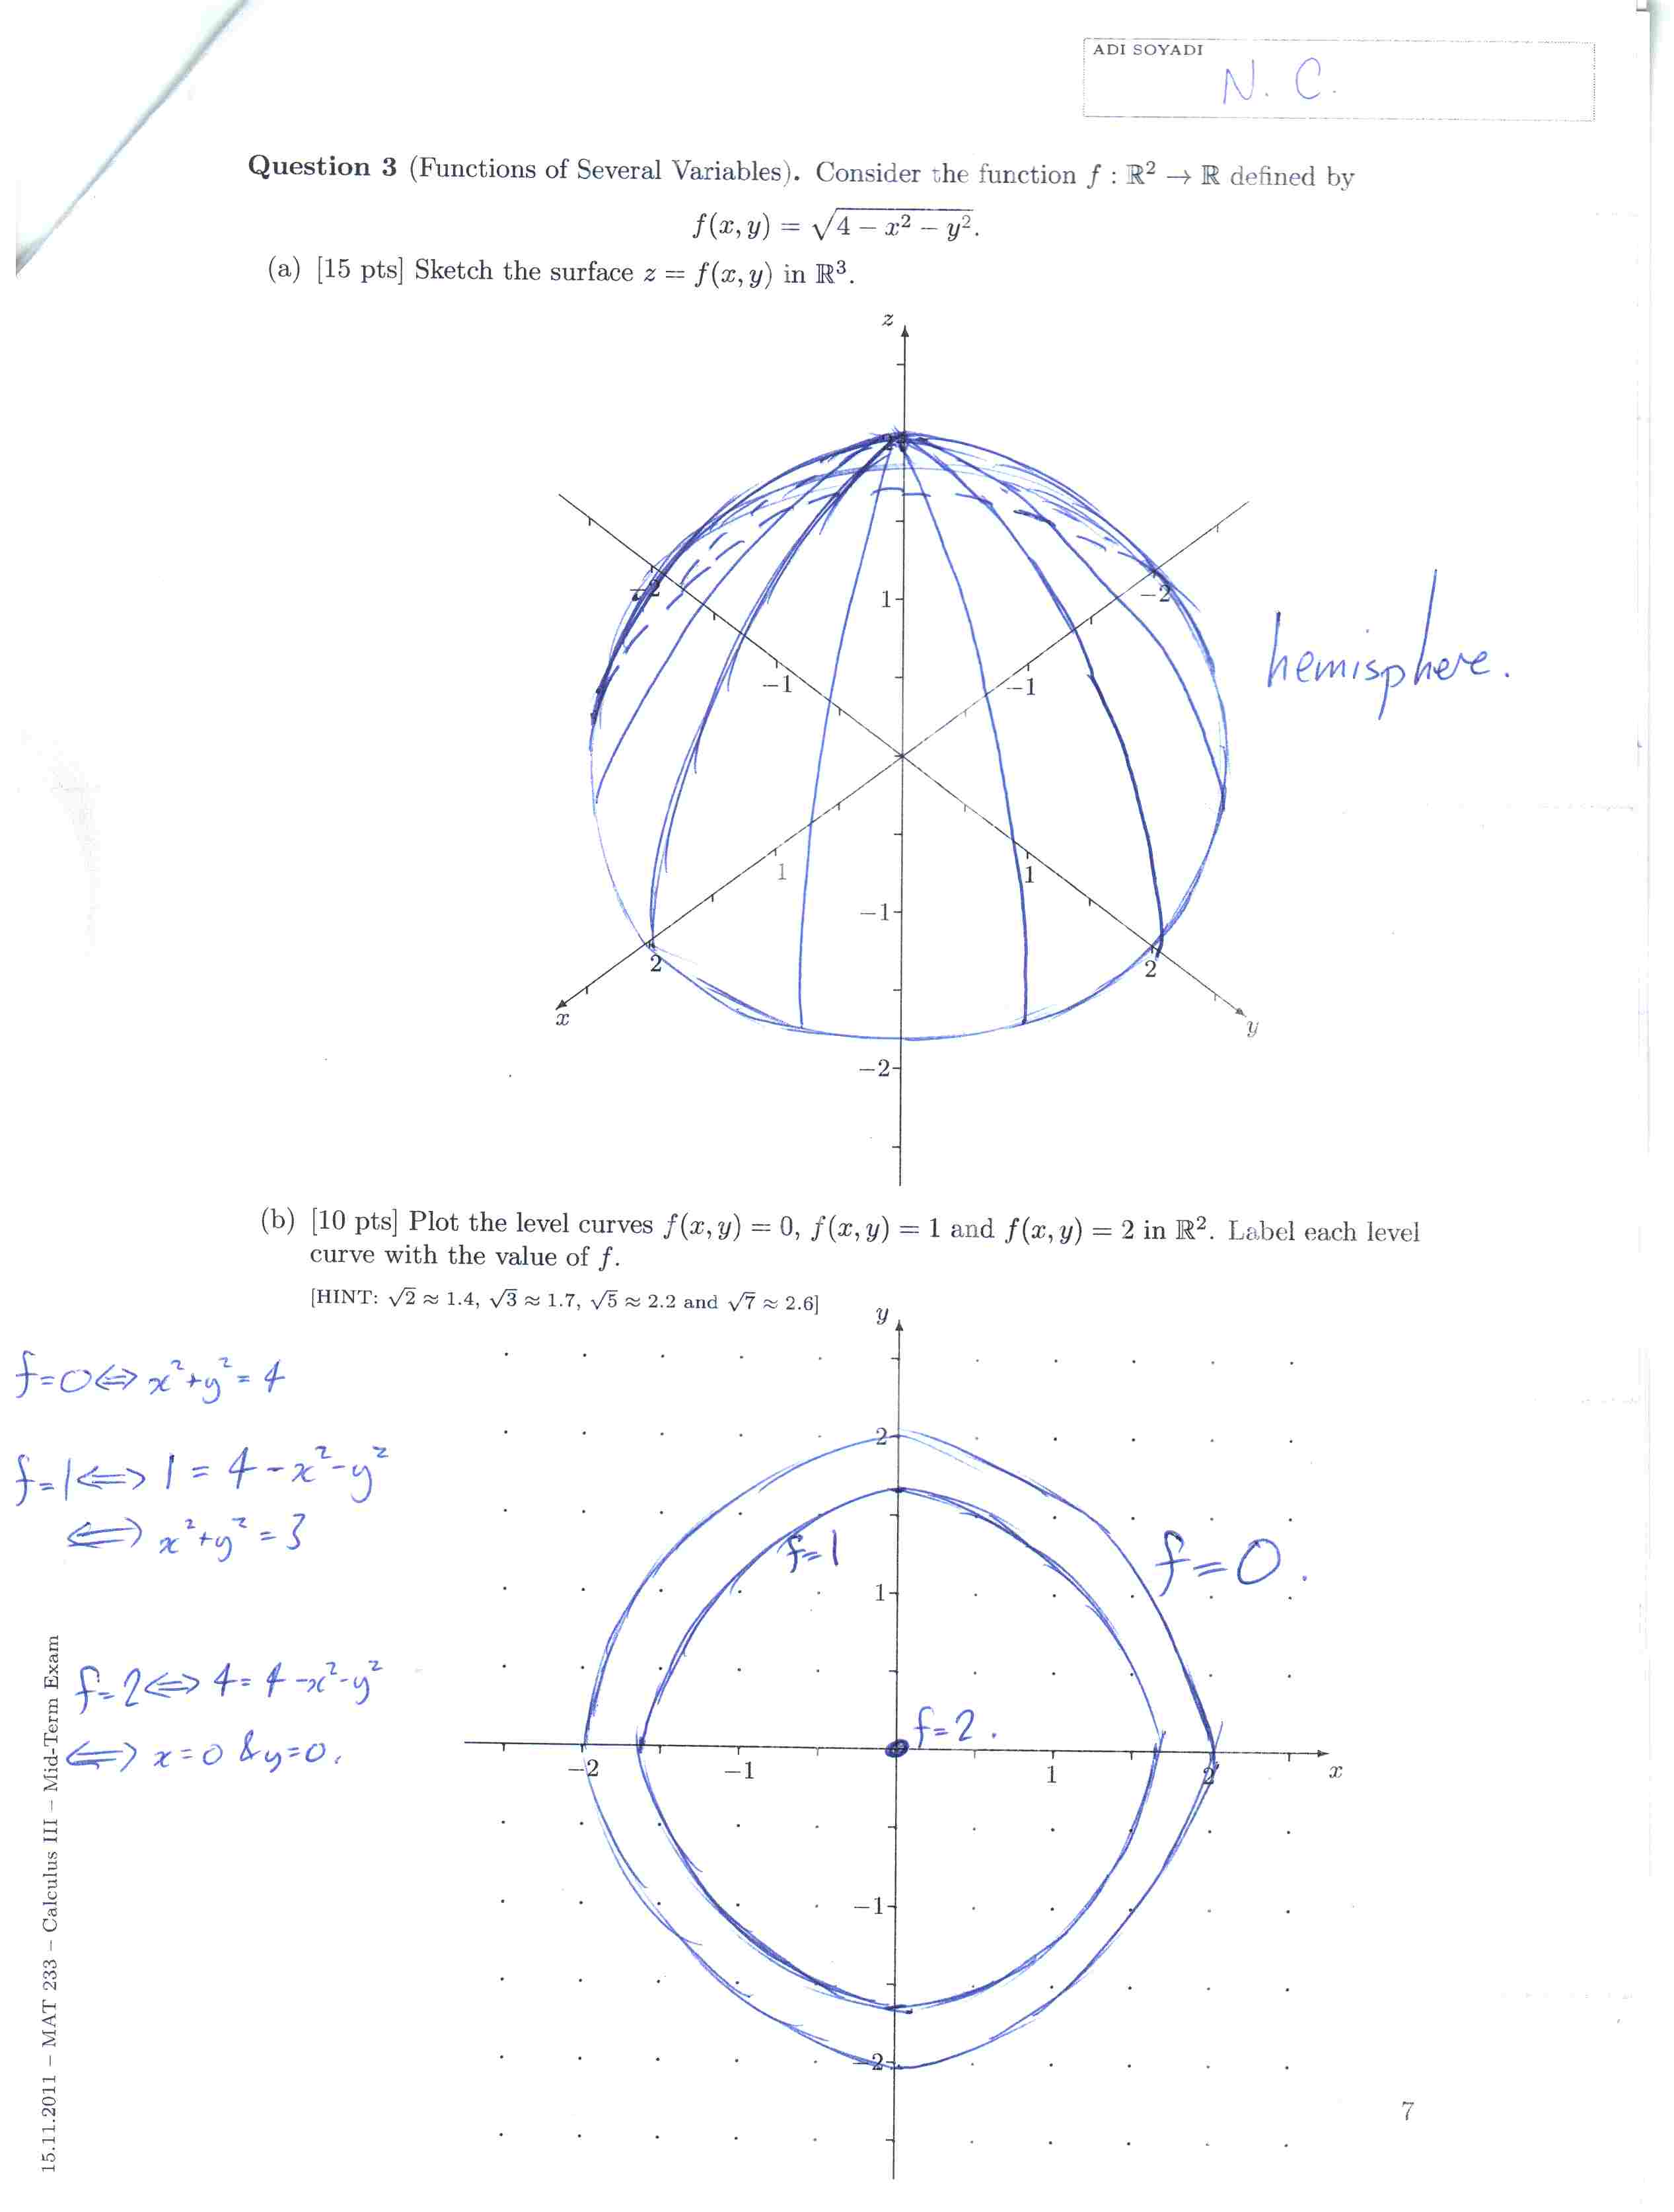 ADI SOYADI
N. C.
Question 3 (Functions of Several Variables). Consider the function f : ℝ² → ℝ defined by
f(x, y) = √(4 − x² − y²).
(a) [15 pts] Sketch the surface z = f(x, y) in ℝ³.
z
2
−2
−2
1
−1
−1
hemisphere.
1
1
−1
2
2
x
y
−2
(b) [10 pts] Plot the level curves f(x, y) = 0, f(x, y) = 1 and f(x, y) = 2 in ℝ². Label each level
curve with the value of f.
[HINT: √2 ≈ 1.4, √3 ≈ 1.7, √5 ≈ 2.2 and √7 ≈ 2.6]
y
f=0⟺x²+y²=4
2
f=1⟺1=4-x²-y²
⟺x²+y²=3
f=1
f=0.
1
f=2⟺4=4-x²-y²
f=2.
⟺x=0 &y=0.
−2
−1
1
2
x
−1
−2
7
15.11.2011 – MAT 233 – Calculus III – Mid-Term Exam